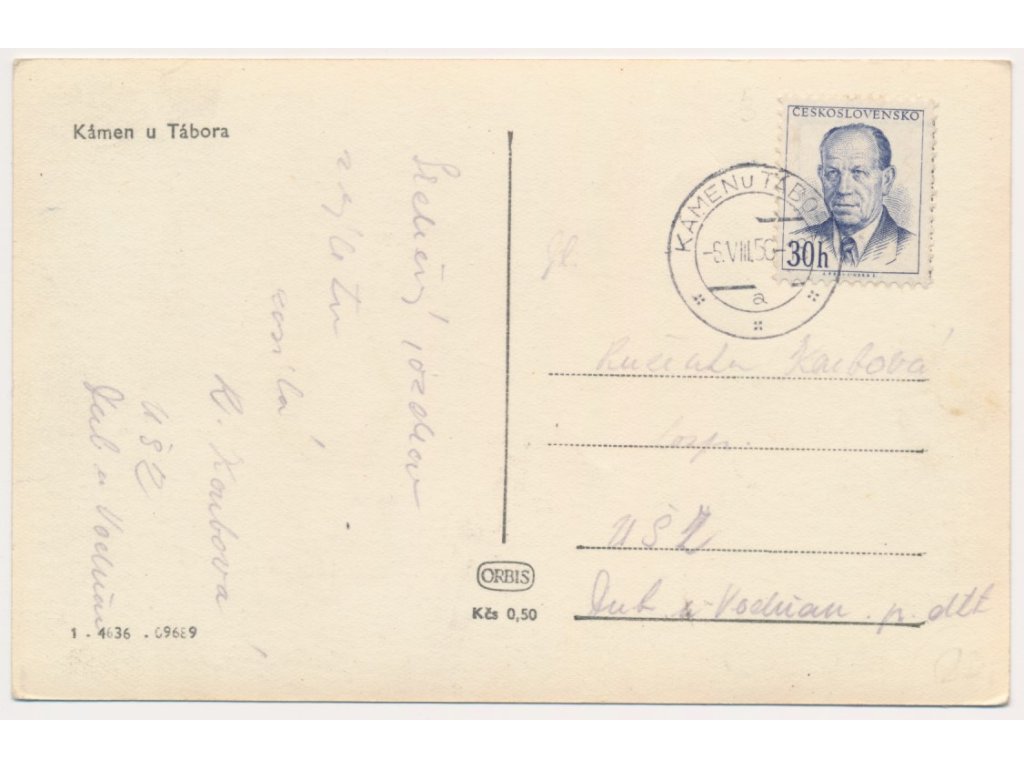 Kámen u Tábora
Srdečný pozdrav
z výletu
posílá
R. Koubová
UŠZ
Dub u Vodňan
1 - 4636 . 09689
ORBIS
Kčs 0,50
ČESKOSLOVENSKO
30h
KÁMEN u TÁBO
-6.VIII.56-
a
Koubová
UŠZ
Dub u Vodňan p. dtt